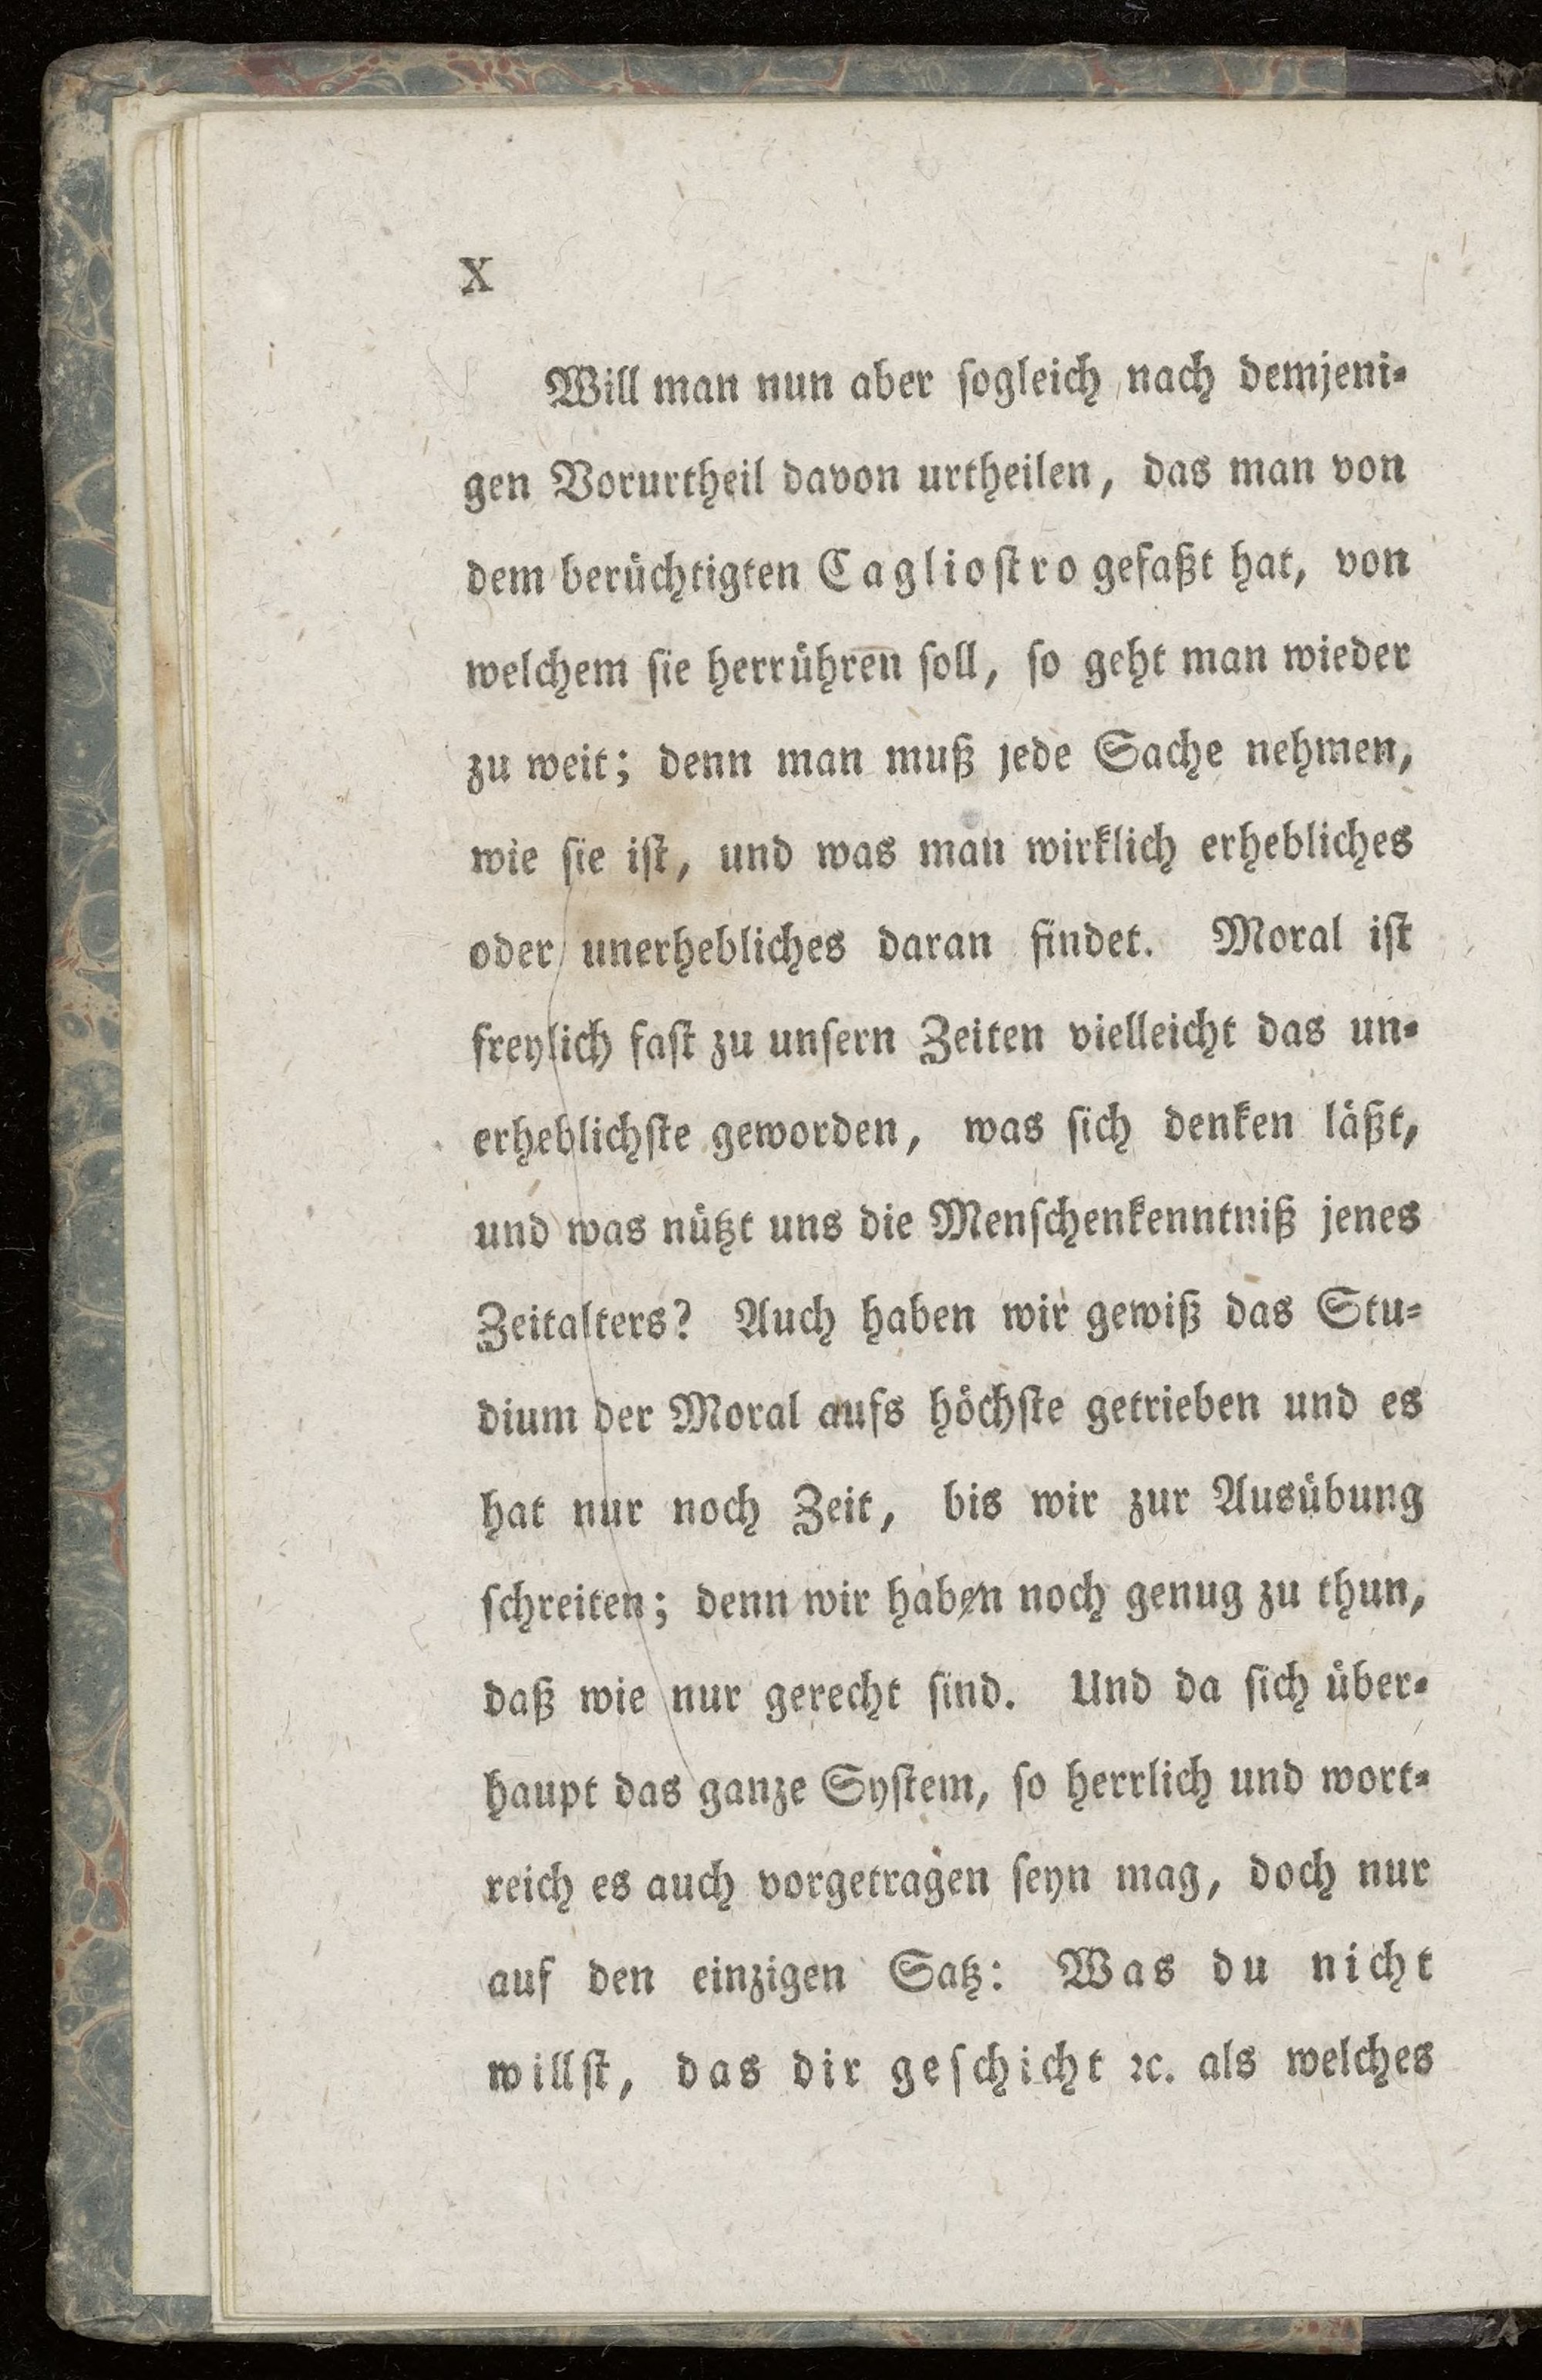 X
Will man nun aber ſogleich nach demjeni-
gen Vorurtheil davon urtheilen, das man von
dem beruͤchtigten Cagliostro gefaßt hat, von
welchem ſie herruͤhren ſoll, ſo geht man wieder
zu weit; denn man muß jede Sache nehmen,
wie ſie iſt, und was man wirklich erhebliches
oder unerhebliches daran findet. Moral iſt
freylich faſt zu unſern Zeiten vielleicht das un-
erheblichſte geworden, was ſich denken laͤßt,
und was nuͤtzt uns die Menſchenkenntniß jenes
Zeitalters? Auch haben wir gewiß das Stu-
dium der Moral aufs hoͤchſte getrieben und es
hat nur noch Zeit, bis wir zur Ausuͤbung
ſchreiten; denn wir haben noch genug zu thun,
daß wie nur gerecht ſind. Und da ſich uͤber-
haupt das ganze Syſtem, ſo herrlich und wort-
reich es auch vorgetragen ſeyn mag, doch nur
auf den einzigen Satz: Was du nicht
willſt, das dir geſchicht ꝛc. als welches